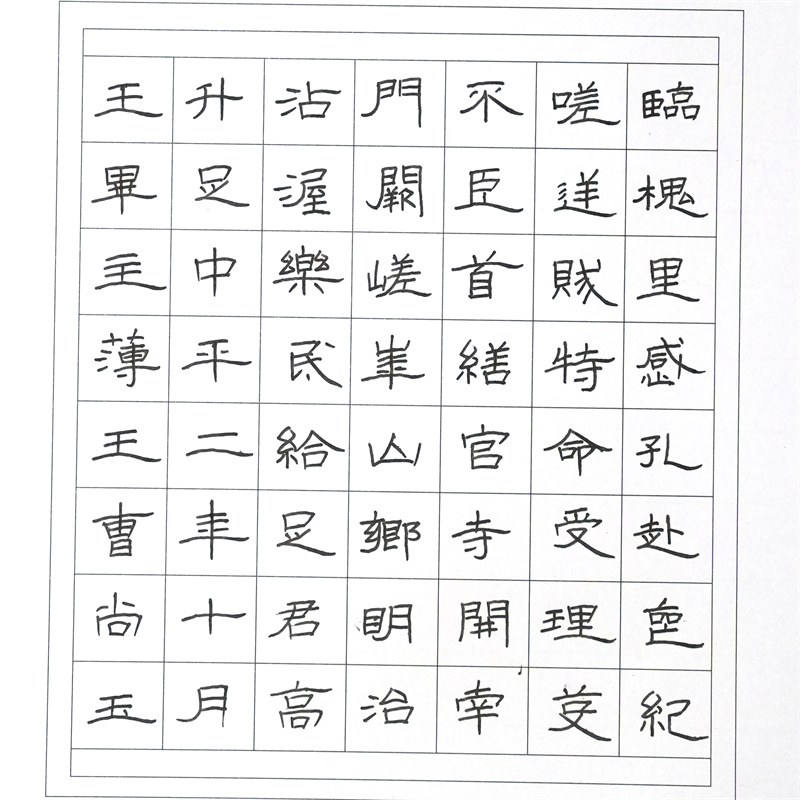 臨槐里感孔赴喪紀
嗟逆賊特命受理芟
不臣首繕官寺開南
門闕嵯峨山鄉明治
沾渥樂民給足君高
升足中平二年十月
王畢主薄王曹尚玉